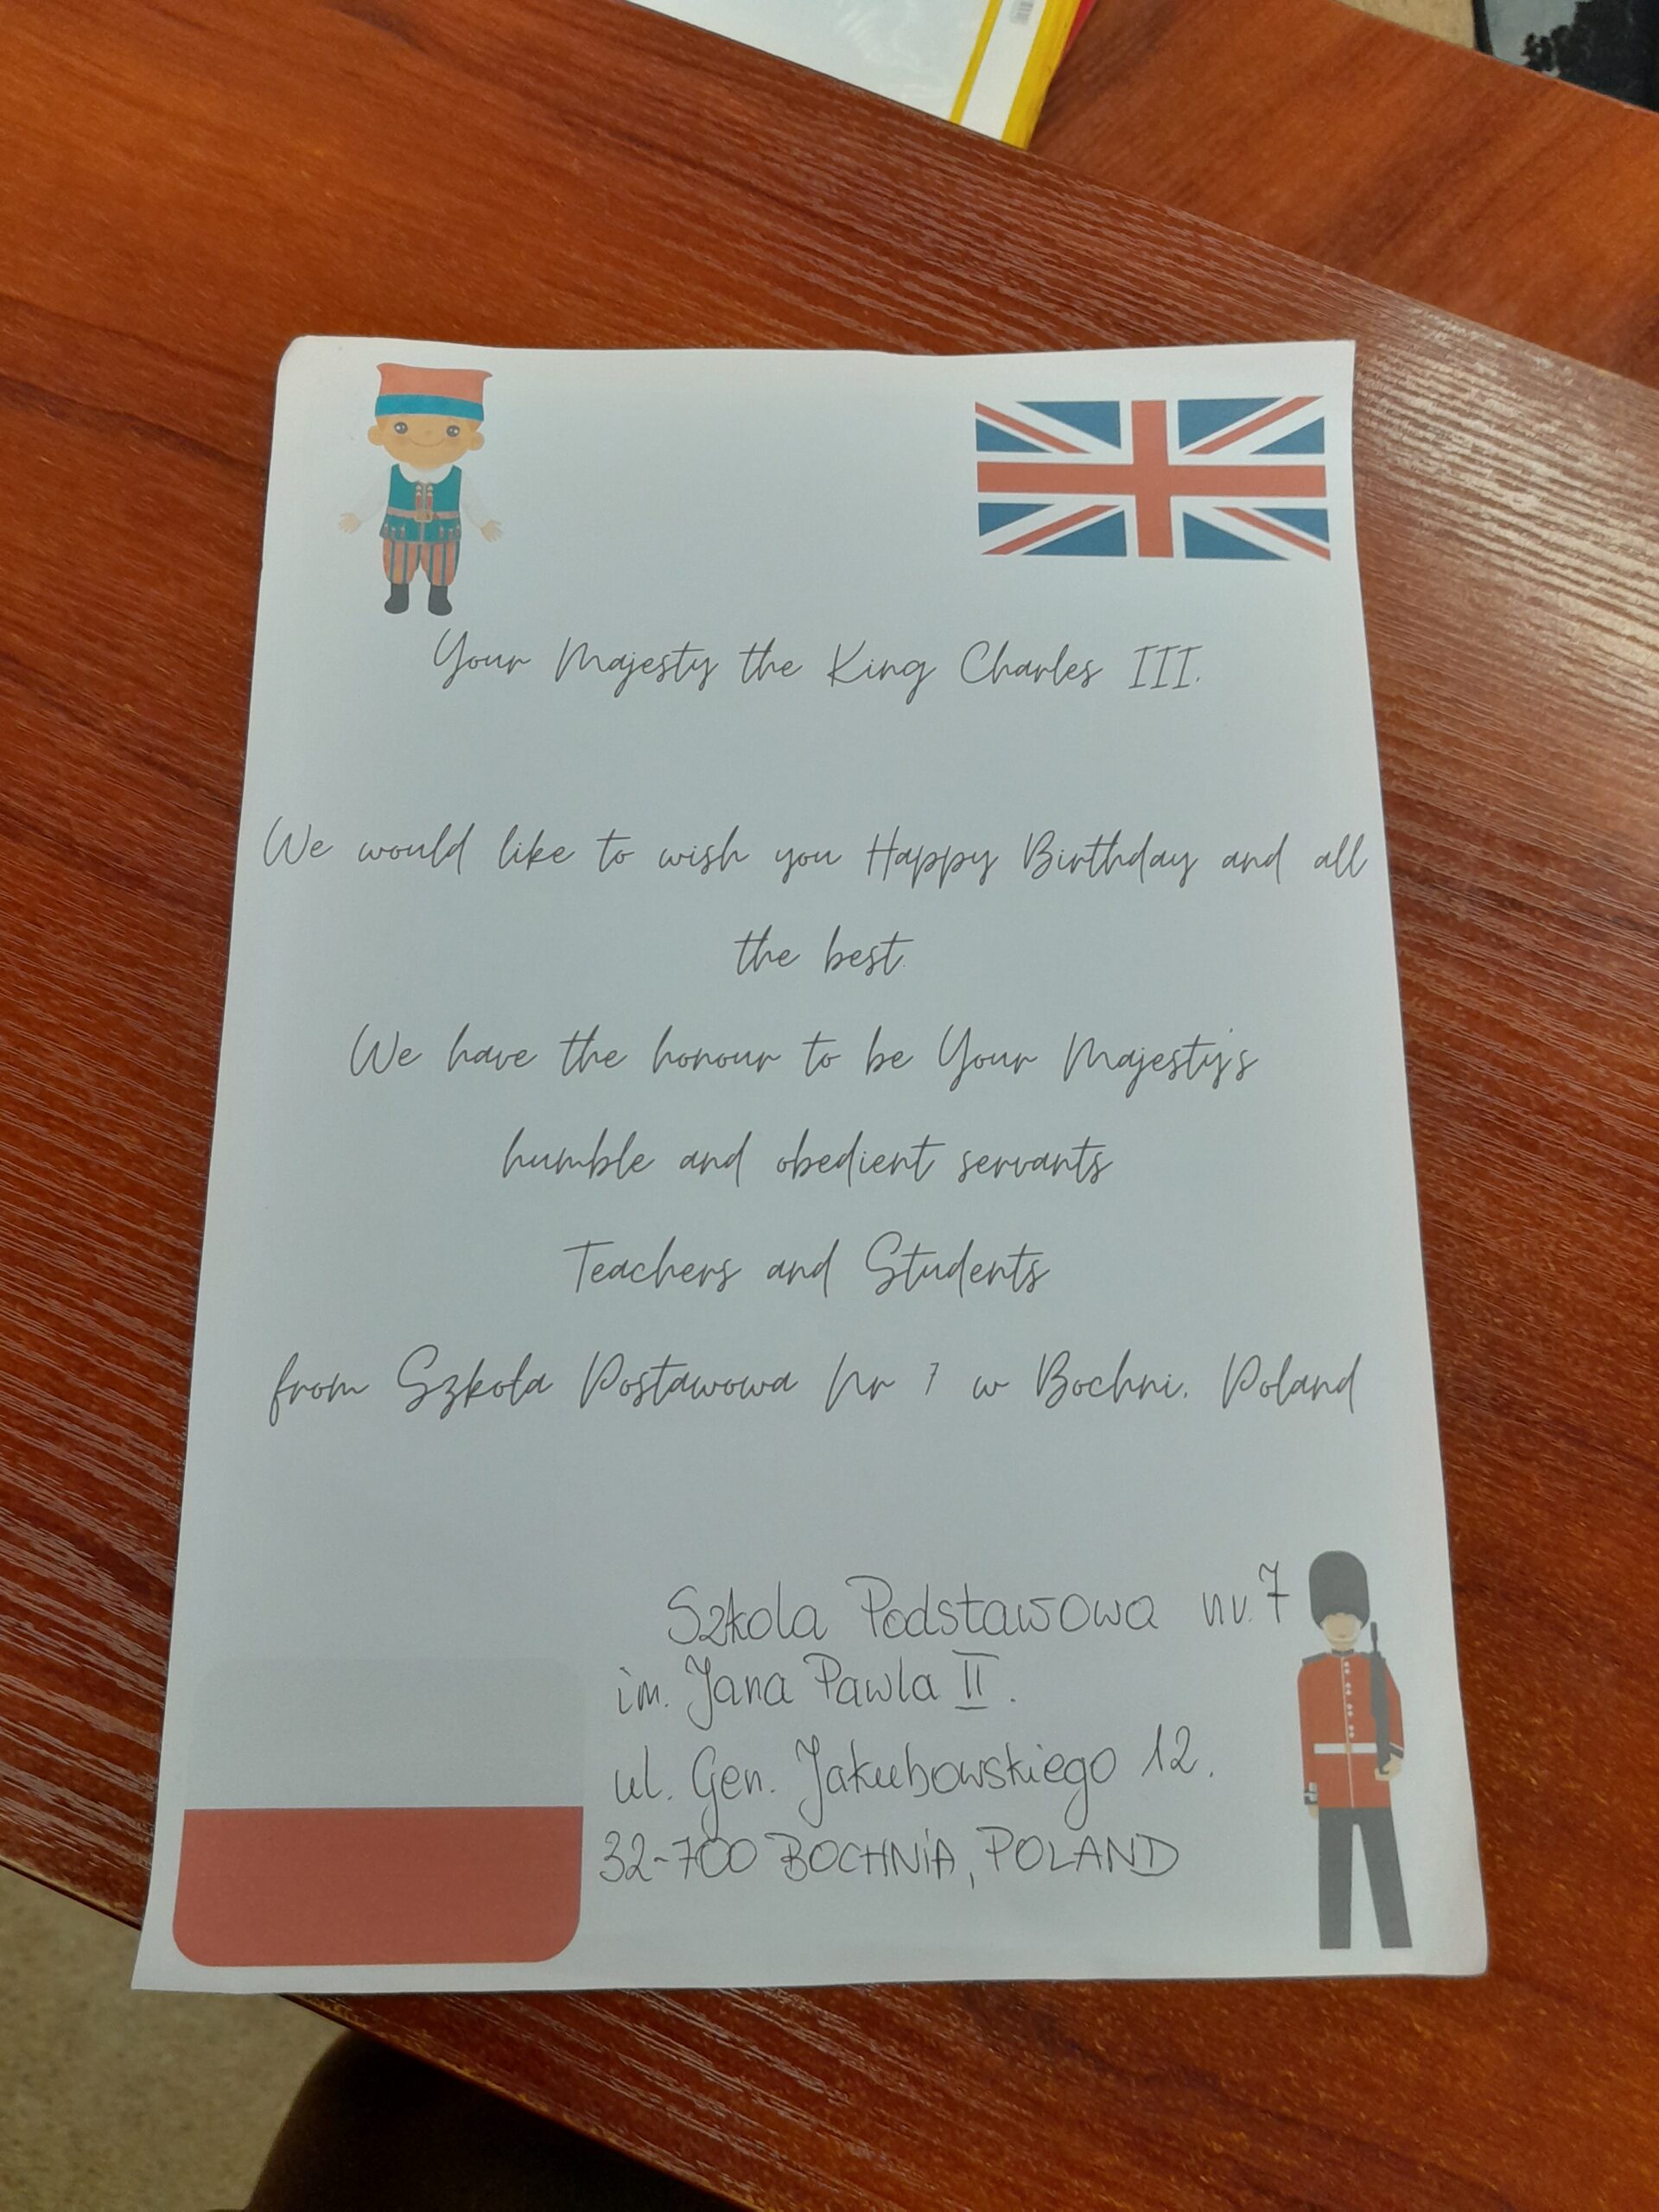 Your Majesty the King Charles III.
We would like to wish you Happy Birthday and all
the best.
We have the honour to be Your Majesty's
humble and obedient servants
Teachers and Students
from Szkoła Postawowa Nr 7 w Bochni, Poland
Szkola Podstawowa nr. 7
im. Jana Pawla II.
ul. Gen. Jakubowskiego 12.
32-700 BOCHNiA, POLAND